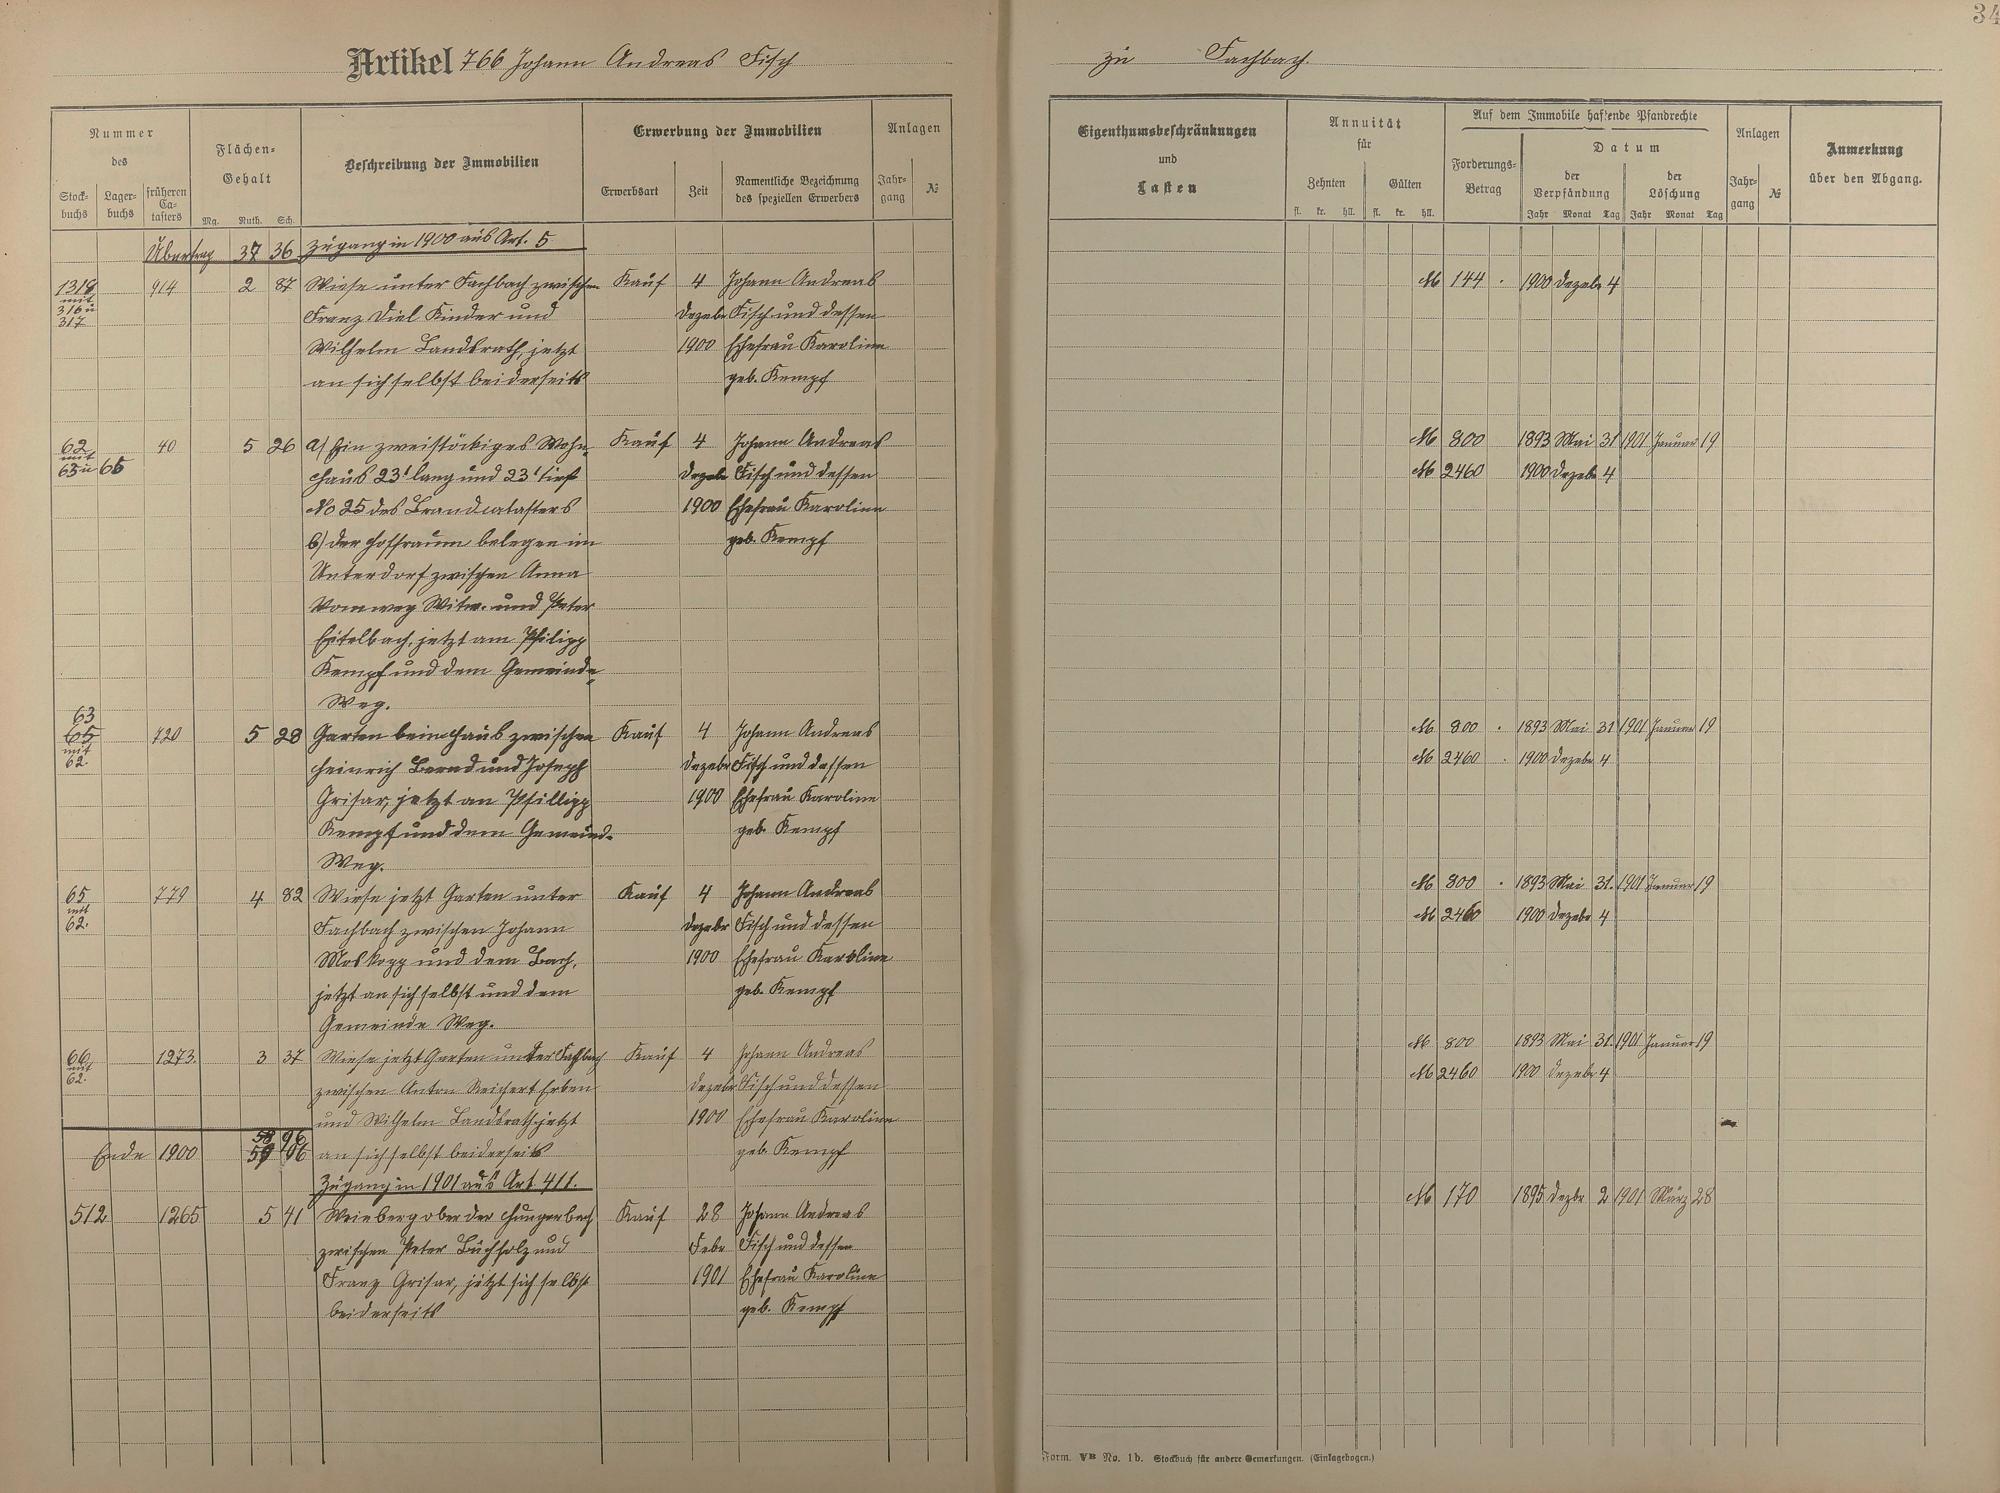 34
Artikel 766 Johann Andreas Fisch
zu Fachbach.
Nummer
des
Stock-
buchs
Lager-
buchs
früheren
Ca-
tasters
Flächen-
Gehalt
Mg. Ruth. Sch.
Beschreibung der Immobilien
Erwerbung der Immobilien
Erwerbsart
Zeit
Namentliche Bezeichnung
des speziellen Erwerbers
Anlagen
Jahr-
gang
№
Eigenthumsbeschränkungen
und
Lasten
Annuität
für
Zehnten
Gülten
fl. kr. hll. fl. kr. hll.
Auf dem Immobile haftende Pfandrechte
Forderungs-
Betrag
Datum
der
Verpfändung
der
Löschung
Jahr Monat Tag Jahr Monat Tag
Anlagen
Jahr-
gang
№
Anmerkung
über den Abgang.
Übertrag 37 36 Zugang in 1900 aus Art. 5
1318 914 2 87 Wiese unter Fachbach zwischen Kauf 4 Johann Andreas M 144 . 1900 Dezebr 4
mit
316 u
317
Franz Diel Kinder und Dezebr Fisch und dessen
Wilhelm Landsrath, jetzt 1900 Ehefrau Karoline
an sich selbst beiderseits geb. Kempf
62 40 5 26 a) Ein zweistöckiges Wohn- Kauf 4 Johann Andreas M 800 1893 Mai 31 1901 Januar 19
mit
65 u 66 haus 23' lang und 23' tief Dezebr Fisch und dessen M 2460 1900 Dezebr 4
No 25 des Brandcatasters 1900 Ehefrau Karoline
b) der Hoffraum belegen im geb. Kempf
Unterdorf zwischen Anna
Vomweg Witw. und Peter
Eitelbach, jetzt am Philipp
Kempf und dem Gemeinde-
Weg.
63
65 720 5 28 Garten beim Haus zwischen Kauf 4 Johann Andreas M 800 . 1893 Mai 31 1901 Januar 19
mit
62. Heinrich Bernd und Joseph Dezebr Fisch und dessen M 2460 . 1900 Dezebr 4
Grisar, jetzt an Phillipp 1900 Ehefrau Karoline
Kempf und dem Gemeind- geb. Kempf
Weg.
65 779 4 82 Wiese jetzt Garten unter Kauf 4 Johann Andreas M 800 . 1893 Mai 31. 1901 Januar 19
mit
62. Fachbach zwischen Johann Dezebr Fisch und dessen M 2460 1900 Dezebr 4
Moskopp und dem Bach, 1900 Ehefrau Karoline
jetzt an sich selbst und dem geb. Kempf
Gemeinde Weg.
66 1273. 3 37 Wiese jetzt Garten unter Fachbach Kauf 4 Johann Andreas M 800 1893 Mai 31. 1901 Januar 19
mit
62. zwischen Anton Reichert Erben Dezebr Fisch und dessen M 2460 1900 Dezebr 4
und Wilhelm Landsrath jetzt 1900 Ehefrau Karoline
58 96
Ende 1900 59 06 an sich selbst beiderseits geb. Kempf
Zugang in 1901 aus Art. 411.
512 1265 5 41 Weinberg ober der Hungerbach Kauf 28 Johann Andreas M 170 1895 Dezbr 2 1901 März 28
zwischen Peter Buchholz und Febr Fisch und dessen
Franz Grisar, jetzt sich selbst 1901 Ehefrau Karoline
beiderseits geb. Kempf
Form. VB No. 1b. Stockbuch für andere Gemarkungen. (Einlagebogen.)